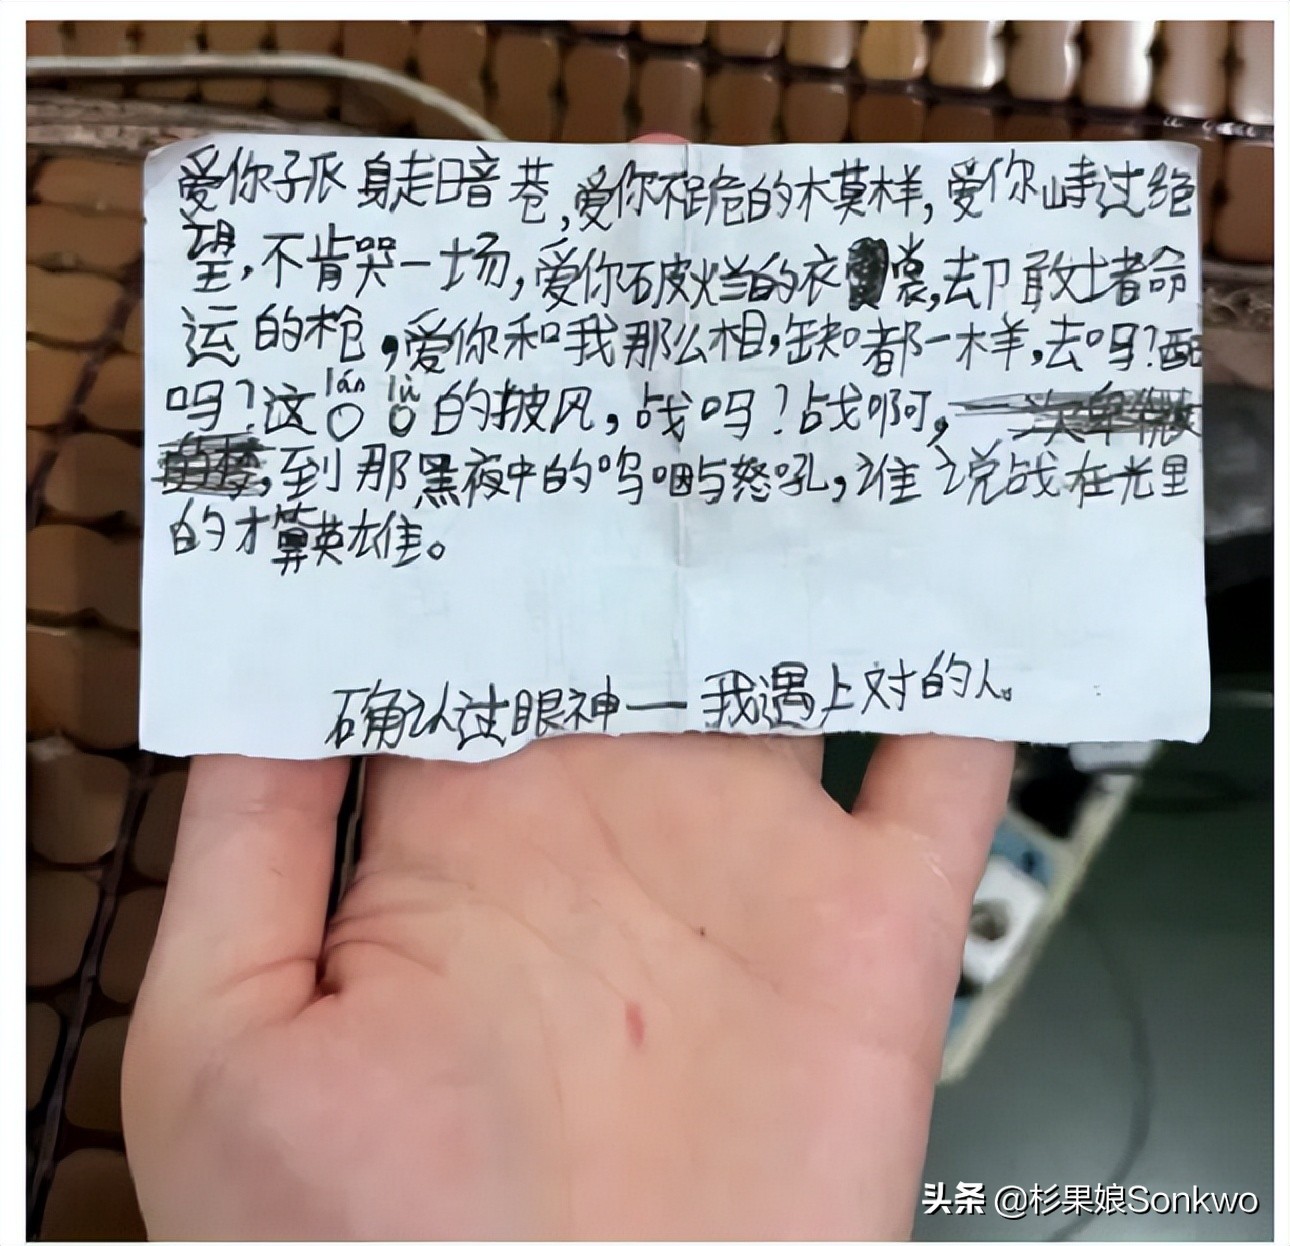 爱你孤身走暗苍,爱你不跪的模样,爱你峙过绝
望,不肯哭一场,爱你破烂的衣裳,却敢堵命
运的枪,爱你和我那么相,缺都一样,去吗?配
吗?这lán lǚ〇〇的披风,战吗?战啊,
到那黑夜中的呜咽与怒吼,谁说战在光里
的才算英雄。
确认过眼神一我遇上对的人。
头条 @杉果娘Sonkwo